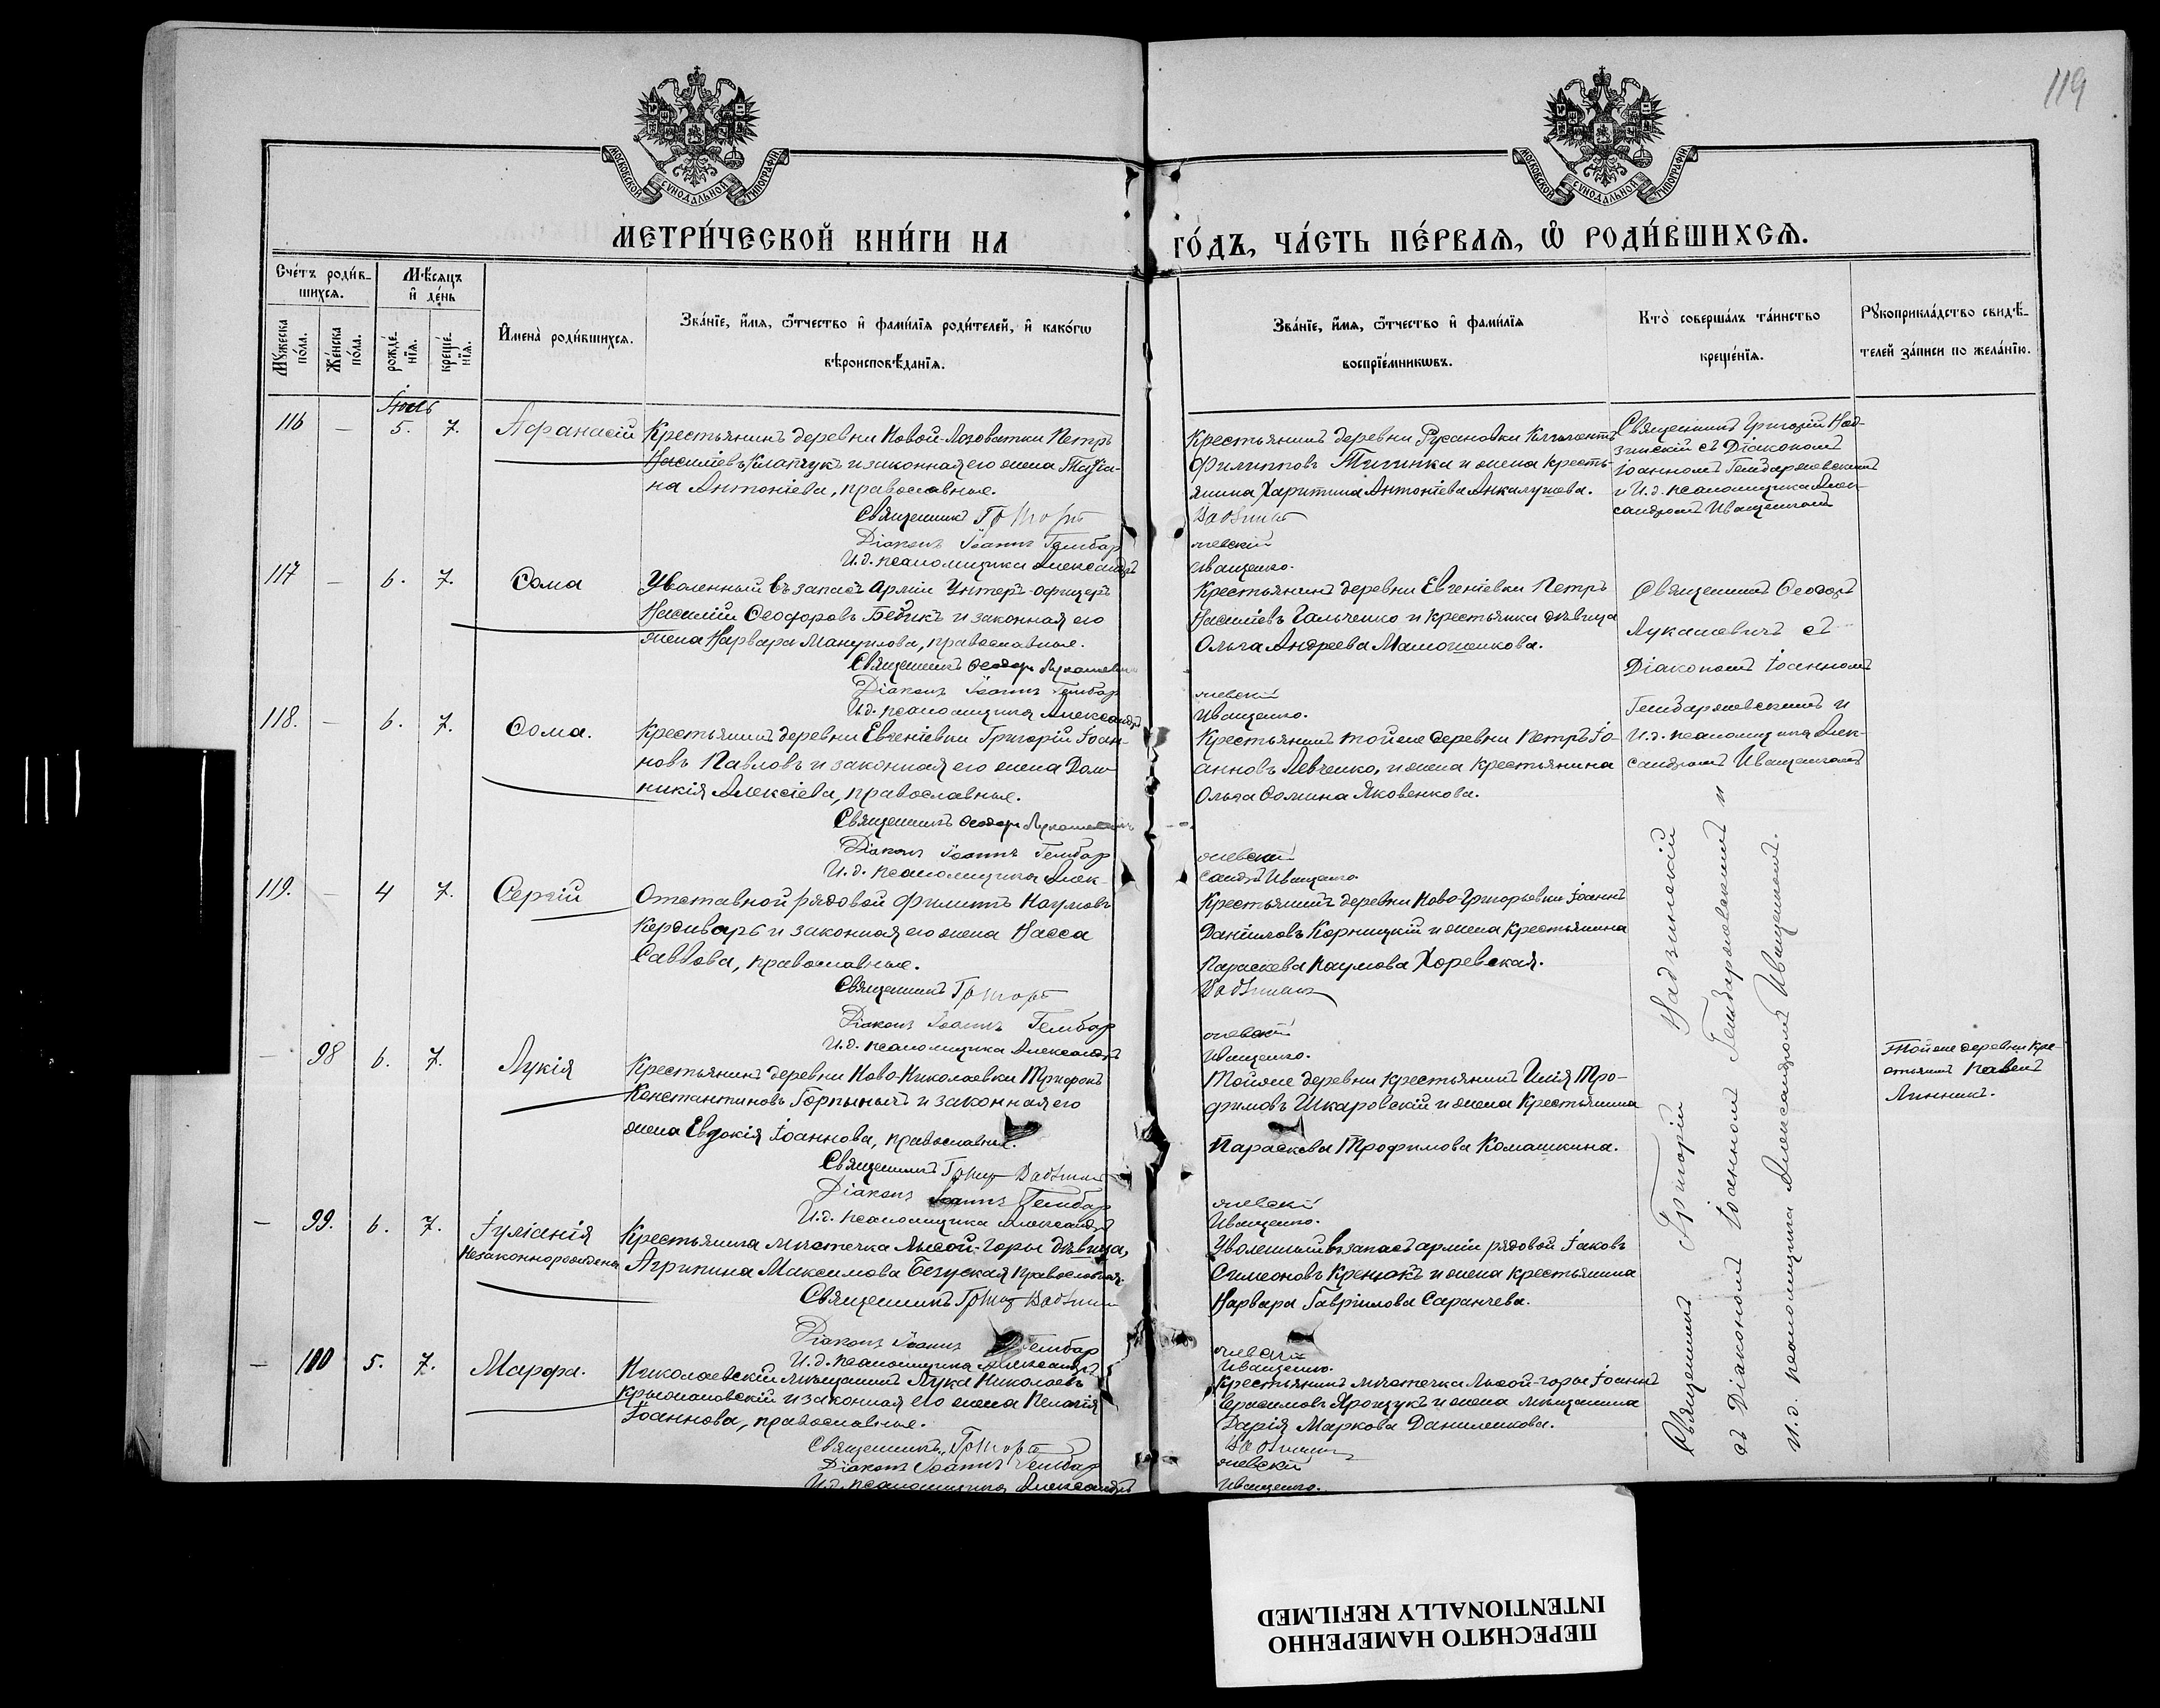 119
МОСКОВСКОЙ СѴНОДАЛЬНОЙ ТИПОГРАФІИ
МОСКОВСКОЙ СѴНОДАЛЬНОЙ ТИПОГРАФІИ
МЕТРИ́ЧЕСКОЙ КНИ́ГИ НА
ГО́ДЪ, ЧА́СТЬ ПЕ́РВАЯ, Ѿ РОДИ́ВШИХСЯ.
Сче́тъ роди́в-
шихся.
Мѣ́сяцъ
и де́нь
Му́жеска по́ла.
Же́нска по́ла.
рожде́-
нїя.
креще́-
нїя.
Имена̀ роди́вшихся.
Зва́нїе, и́мя, ѻ҆́тчество и фами́лїя роди́телей, и како́гѡ
вѣроисповѣ́данїя.
Зва́нїе, и́мя, ѻ҆́тчество и фами́лїя
воспрїе́мникѡвъ.
Кто̀ соверша́лъ та́инство
креще́нїя.
Рукоприкла́дство свидѣ́-
телей за́писи по жела́нїю.
116 — 5. 7. Аѳанасій
Крестьянинъ деревни Новой-Лозоватки Петръ
Василіевъ Клапчукъ и законная его жена Татіа-
на Антоніева, православные.
Священникъ Григорій
Діаконъ Іоаннъ Гембар
И.д. псаломщика Александръ
Крестьянинъ деревни Русановки Климентъ
Филипповъ Тигинка и жена кресть-
янина Харитина Антоніева Анкалушева.
жевскій
Иващенко.
Священникъ Григорій Вад-
зинскій съ Діакономъ
Іоанномъ Гембаржевскимъ
и И.д. псаломщика Алек-
сандромъ Иващенкомъ
117 — 6. 7. Ѳома
Уволенный въ запасъ арміи унтеръ-офицеръ
Василій Ѳеодоровъ Бебикъ и законная его
жена Варвара Мануилова, православные.
Священникъ Ѳеодоръ Лукашевичъ
Діаконъ Іоаннъ Гембар
И.д. псаломщика Александръ
Крестьянинъ деревни Евгеніевки Петръ
Василіевъ Гальченко и крестьянка дѣвица
Ольга Андреева Мамошенкова.
жевскій
Иващенко.
Священникъ Ѳеодоръ
Лукашевичъ съ
Діакономъ Іоанномъ
Гембаржевскимъ и
И.д. псаломщика Алек-
сандромъ Иващенкомъ
118. — 6. 7. Ѳома.
Крестьянинъ деревни Евгеніевки Григорій Іоан-
новъ Павловъ и законная его жена Доми-
никія Алексіева, православные.
Священникъ Ѳеодоръ Лукашевичъ
Діаконъ Іоаннъ Гембар
И.д. псаломщика Алек-
Крестьянинъ той же деревни Петръ Іо-
анновъ Левченко, и жена крестьянина
Ольга Ѳомина Яковенкова.
жевскій
сандръ Иващенко.
119. — 4 7. Сергій
Отставной рядовой Филиппъ Наумовъ
Кердиваръ и законная его жена Васса
Саввова, православные.
Священникъ Григорій
Діаконъ Іоаннъ Гембар
И.д. псаломщика Александръ
Крестьянинъ деревни Ново-Григорьевки Іоаннъ
Даніиловъ Корницкій и жена крестьянина
Параскева Наумова Хоревская.
жевскій
Иващенко.
— 98 6. 7. Лукія
Крестьянинъ деревни Ново-Николаевки Трифонъ
Константиновъ и законная его
жена Евдокія Іоаннова, православные.
Священникъ Григорій Вадзинскій
Діаконъ Іоаннъ Гембар
И.д. псаломщика Александръ
Той же деревни крестьянинъ Илія Тро-
фимовъ Шкаровскій и жена крестьянина
Параскева Трофимова Комашкина.
жевскій
Иващенко.
Той же деревни кре-
стьянинъ Павелъ
Линникъ.
— 99. 6. 7. Іуліанія
Незаконнорожденная
Крестьянка мѣстечка Лысой-Горы дѣвица,
Агрипина Максимова Безуская православная.
Священникъ Григорій Вадзинскій
Діаконъ Іоаннъ Гембар
И.д. псаломщика Александръ
Уволенный въ запасъ арміи рядовой Іаковъ
Симеоновъ Кренюкъ и жена крестьянина
Варвара Гавріилова Саранчева.
жевскій
Иващенко.
— 100 5. 7. Марфа.
Николаевскій мѣщанинъ Лука Николаевъ
Крыжановскій и законная его жена Пелагія
Іоаннова, православные.
Священникъ Григорій
Діаконъ Іоаннъ Гембар
И.д. псаломщика Александръ
Крестьянинъ мѣстечка Лысой-горы Іоаннъ
Герасимовъ Ярощукъ и жена мѣщанина
Дарія Маркова Даниленкова.
жевскій
Иващенко.
Священникъ Григорій Вадзинскій
съ Діакономъ Іоанномъ Гембаржевскимъ и
И.д. псаломщика Александромъ Иващенкомъ.
ПЕРЕСНЯТО НАМЕРЕННО
INTENTIONALLY REFILMED